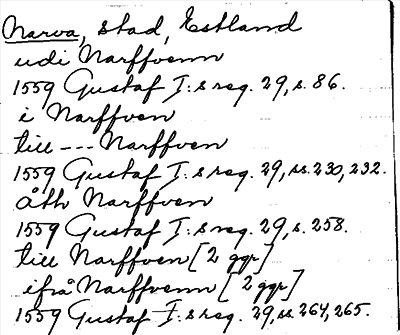 Narva, stad, Estland
udi Narffvenn
1559 Gustaf I:s reg. 29, s. 86.
i Narffven
till --- Narffven
1559 Gustaf I:s reg. 29, ss. 230, 232.
åth Narffven
1559 Gustaf I:s reg. 29, s. 258.
till Narffven [2 ggr]
ifrå Narffvenn [2 ggr]
1559 Gustaf I:s reg 29, ss. 264, 265.